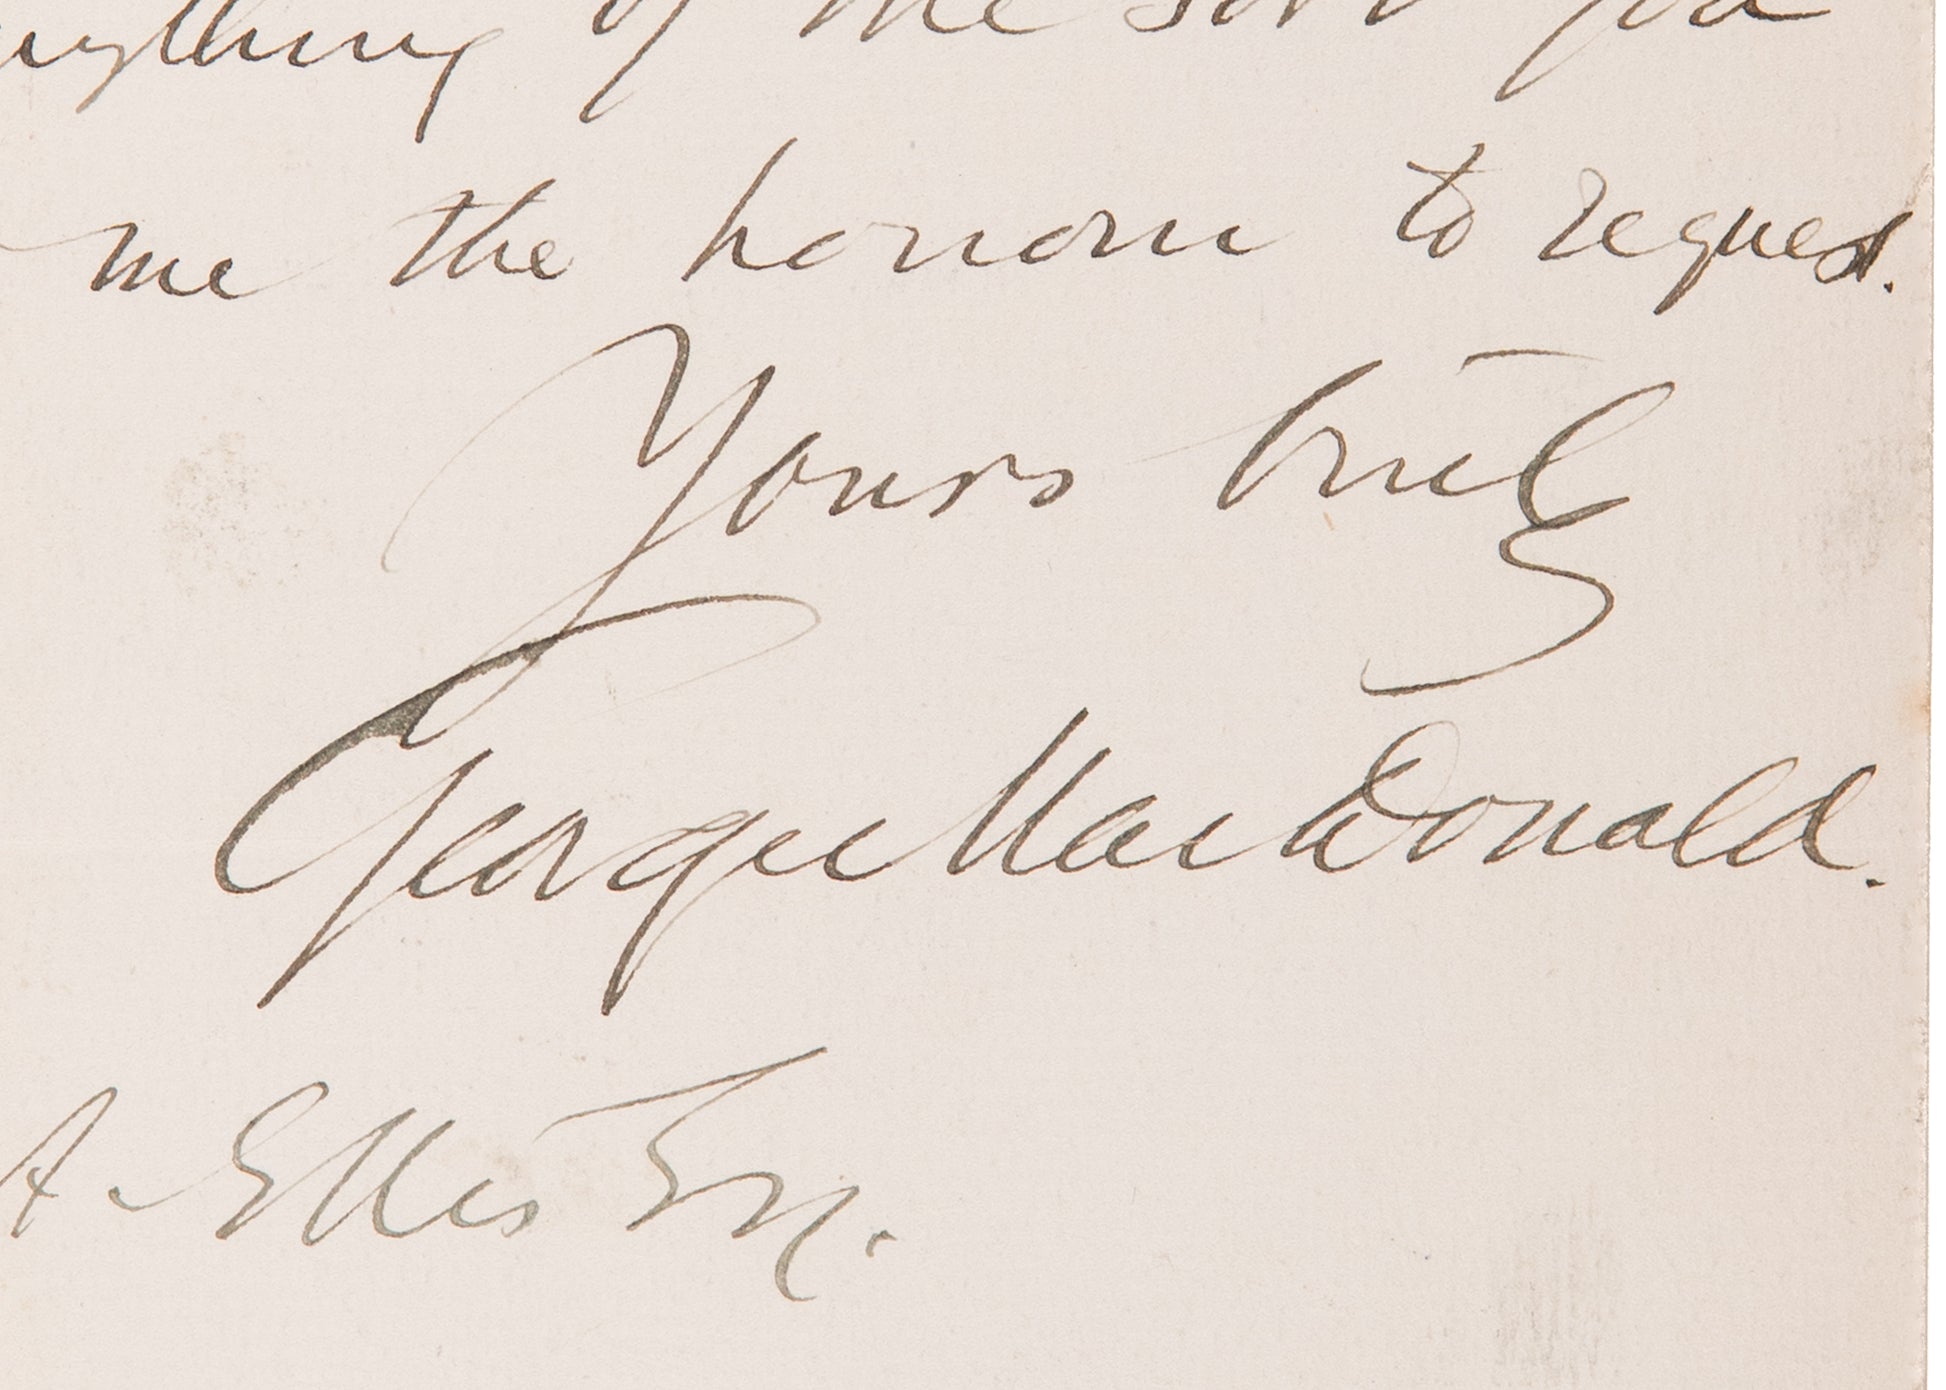 anything of the sort you
me the honour to request.
Yours truly
George MacDonald.
A. Ellis Esq.